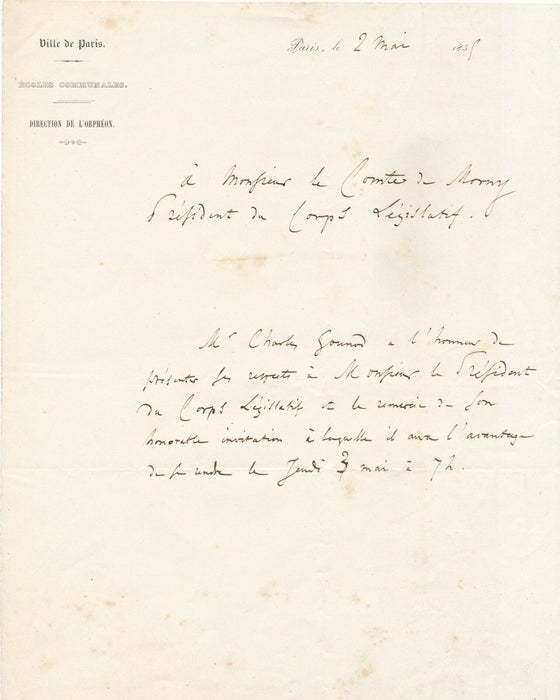 Ville de Paris.
Paris, le 2 Mai 1855
ÉCOLES COMMUNALES.
DIRECTION DE L'ORPHÉON.
à Monsieur le Comte de Morny
Président du Corps Législatif.
Mr Charles Gounod a l'honneur de
présenter ses respects à Monsieur le Président
du Corps Législatif et le remercie de son
honorable invitation à laquelle il aura l'avantage
de se rendre le Jeudi 3 mai à 7h.